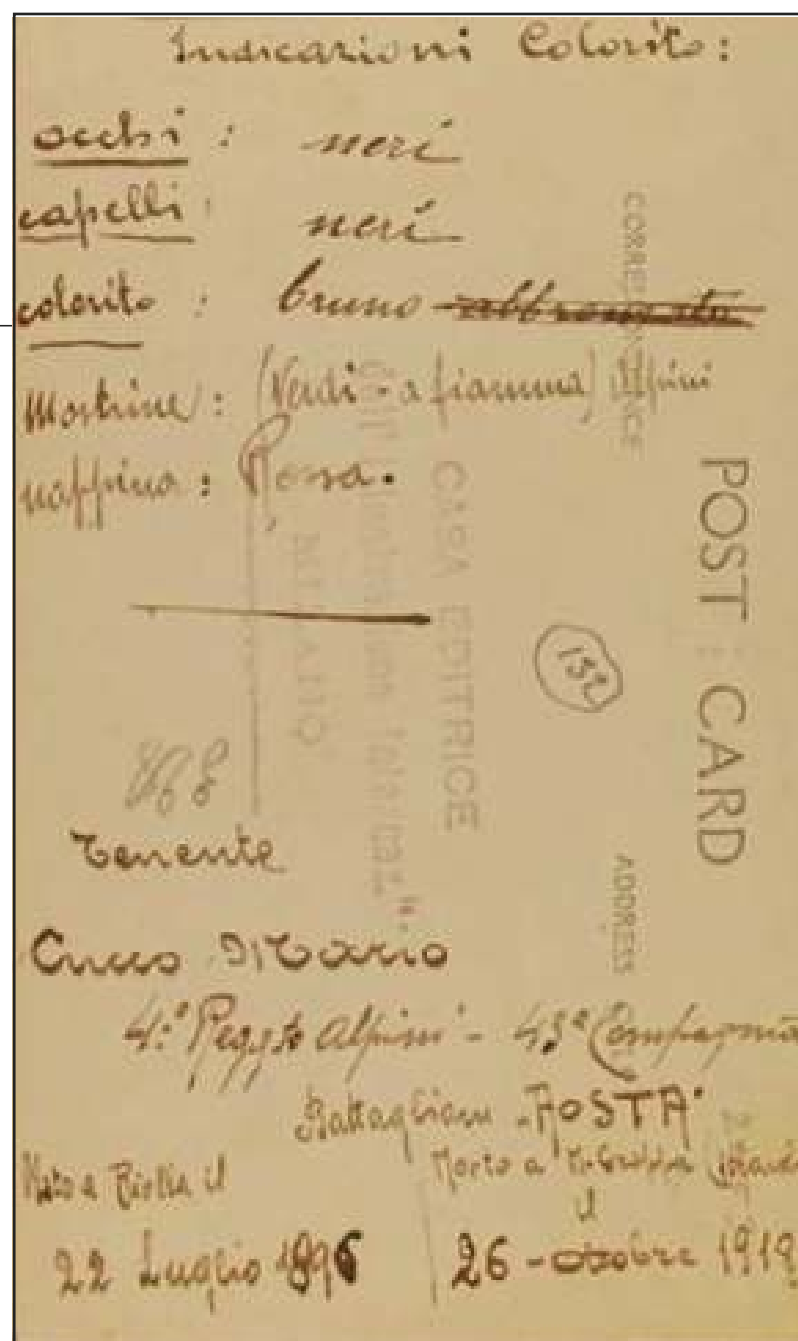 Indicazioni Colorito:
occhi: neri
capelli: neri
colorito: bruno abbronzato
Mostrine: (Verdi - a fiamma) Alpini
nappina: Rossa.
CORRESPONDENCE
POST CARD
ADDRESS
CASA EDITRICE
MILANO
132
Tenente
Cucco Mario
4.° Reggto Alpini - 43ª Compagnia
Battaglione "AOSTA"
Nato a Biella il
22 Luglio 1896
Morto a
il
26 - ottobre 1918